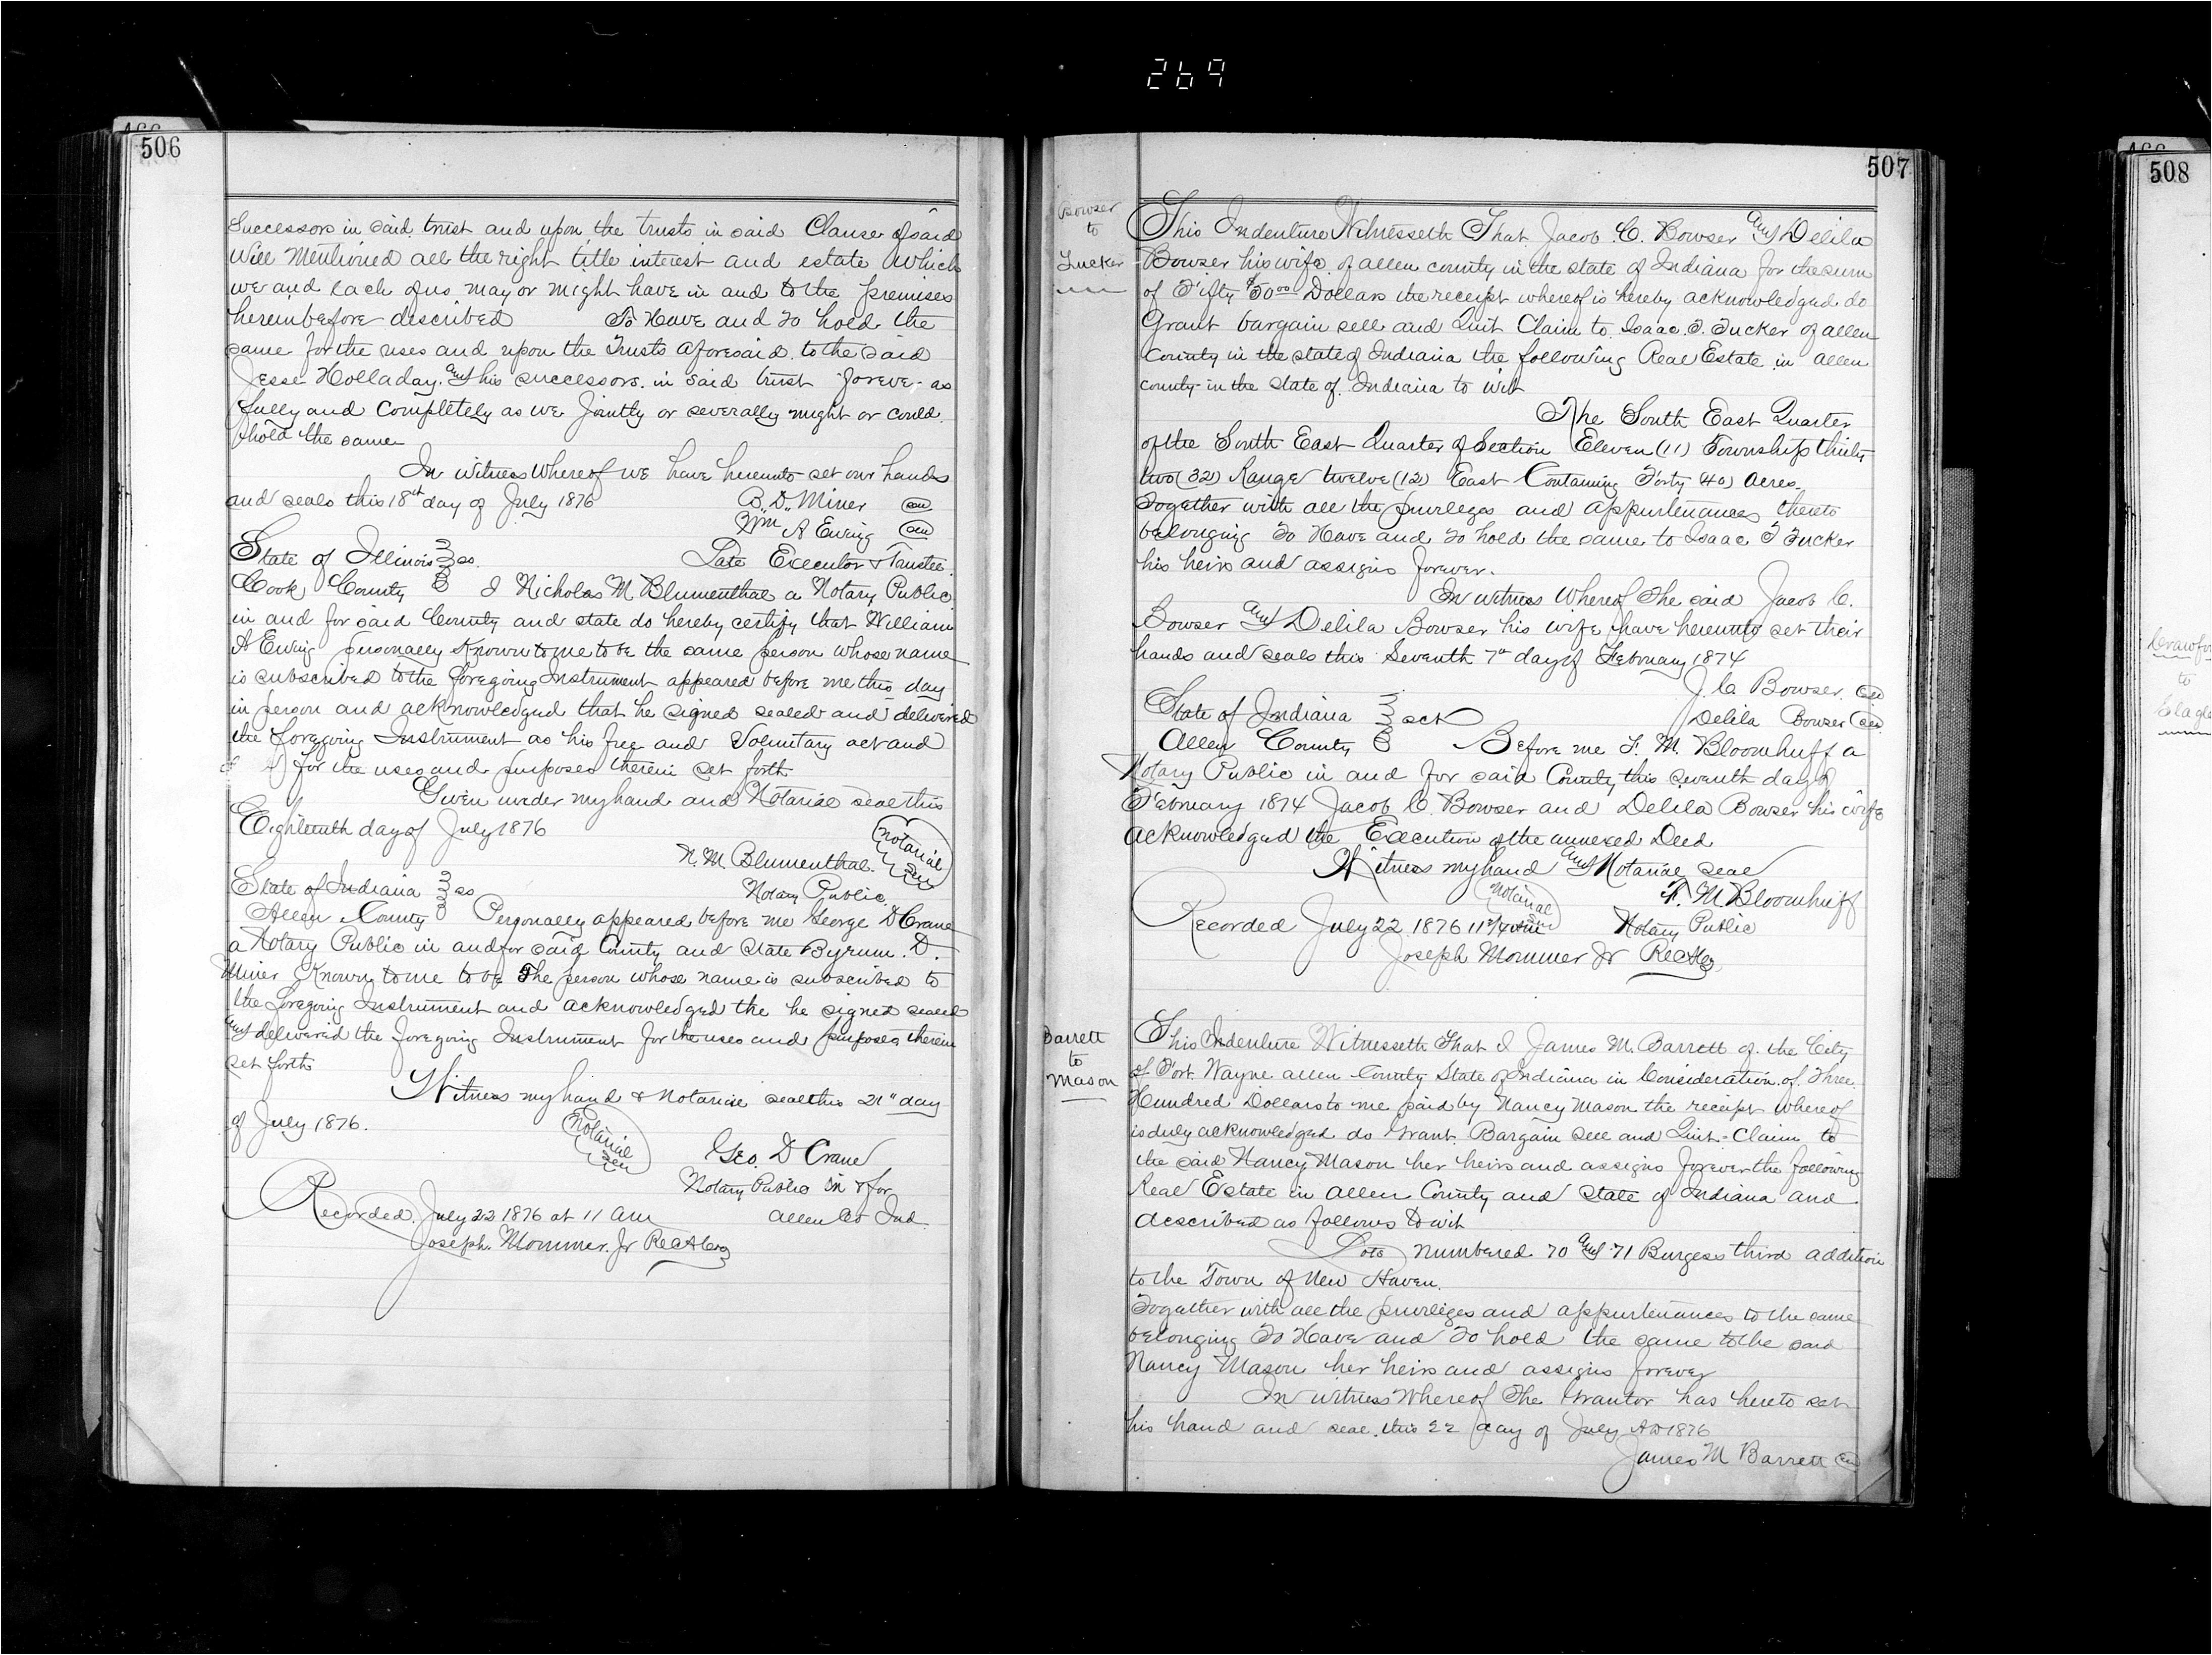 269
506
Successors in said trust and upon the trusts in said Clause of said
Will Mentioned all the right title interest and estate which
we and each of us may or might have in and to the premises
hereinbefore described To Have and To hold the
same for the uses and upon the Trusts aforesaid to the said
Jesse Holladay and his successors in said trust forever as
fully and completely as we Jointly or severally might or could
hold the same
In witness Whereof we have hereunto set our hands
and seals this 18th day of July 1876 B. D. Miner seal
Wm A Ewing seal
State of Illinois ss. Late Executor & Trustee
Cook County I Nicholas M. Blumenthal a Notary Public
in and for said County and state do hereby certify that William
A Ewing personally Known to me to be the same person whose name
is subscribed to the foregoing Instrument appeared before me this day
in person and acknowledged that he signed sealed and delivered
the foregoing Instrument as his free and Voluntary act and
for the uses and purposes therein set forth
Given under my hand and Notarial seal this
Eighteenth day of July 1876
Notarial Seal
N. M. Blumenthal
Notary Public
State of Indiana ss
Allen County Personally appeared before me George D Crane
a Notary Public in and for said County and State Byrum. D.
Miner Known to me to be The person whose name is subscribed to
the foregoing Instrument and acknowledged the he signed sealed
and delivered the foregoing Instrument for the uses and purposes therein
set forth
Witness my hand & Notarial seal this 21st day
of July 1876.
Notarial Seal
Geo. D Crane
Notary Public in & for
Allen Co Ind
Recorded July 22 1876 at 11 AM
Joseph Mommer Jr
507
Bowser
to
Tucker
This Indenture Witnesseth That Jacob C. Bowser and Delila
Bowser his wife of Allen county in the state of Indiana for the sum
of Fifty $50 00 Dollars the receipt whereof is hereby acknowledged do
Grant bargain sell and Quit Claim to Isaac T. Tucker of Allen
County in the state of Indiana the following Real Estate in Allen
county in the state of Indiana to wit
The South East Quarter
of the South East Quarter of Section Eleven (11) Township thirty
two (32) Range twelve (12) East Containing Forty 40) Acres
Together with all the privileges and appurtenances thereto
belonging To Have and To hold the same to Isaac T Tucker
his heirs and assigns forever.
In witness Whereof The said Jacob C.
Bowser and Delila Bowser his wife have hereunto set their
hands and seals this Seventh 7th day of February 1874
J. C. Bowser seal
State of Indiana sct Delila Bowser seal
Allen County Before me F. M. Bloomhuff a
Notary Public in and for said County this seventh day of
February 1874 Jacob C. Bowser and Delila Bowser his wife
acknowledged the Execution of the annexed Deed
Witness my hand and Notarial seal
Notarial Seal
F. M. Bloomhuff
Recorded July 22 1876 Notary Public
Joseph Mommer Jr
Barrett
to
Mason
This Indenture Witnesseth That I James M. Barrett of the City
of Fort Wayne Allen County State of Indiana in Consideration of Three
Hundred Dollars to me paid by Nancy Mason the receipt whereof
is duly acknowledged do Grant Bargain Sell and Quit-Claim to
the said Nancy Mason her heirs and assigns forever the following
Real Estate in Allen County and State of Indiana and
described as follows to wit
Lots numbered 70 and 71 Burgess third addition
to the Town of New Haven.
Together with all the privileges and appurtenances to the same
belonging To Have and To hold the same to the said
Nancy Mason her heirs and assigns forever
In witness Whereof The Grantor has hereto set
his hand and seal this 22 day of July AD 1876
James M Barrett seal
508
to